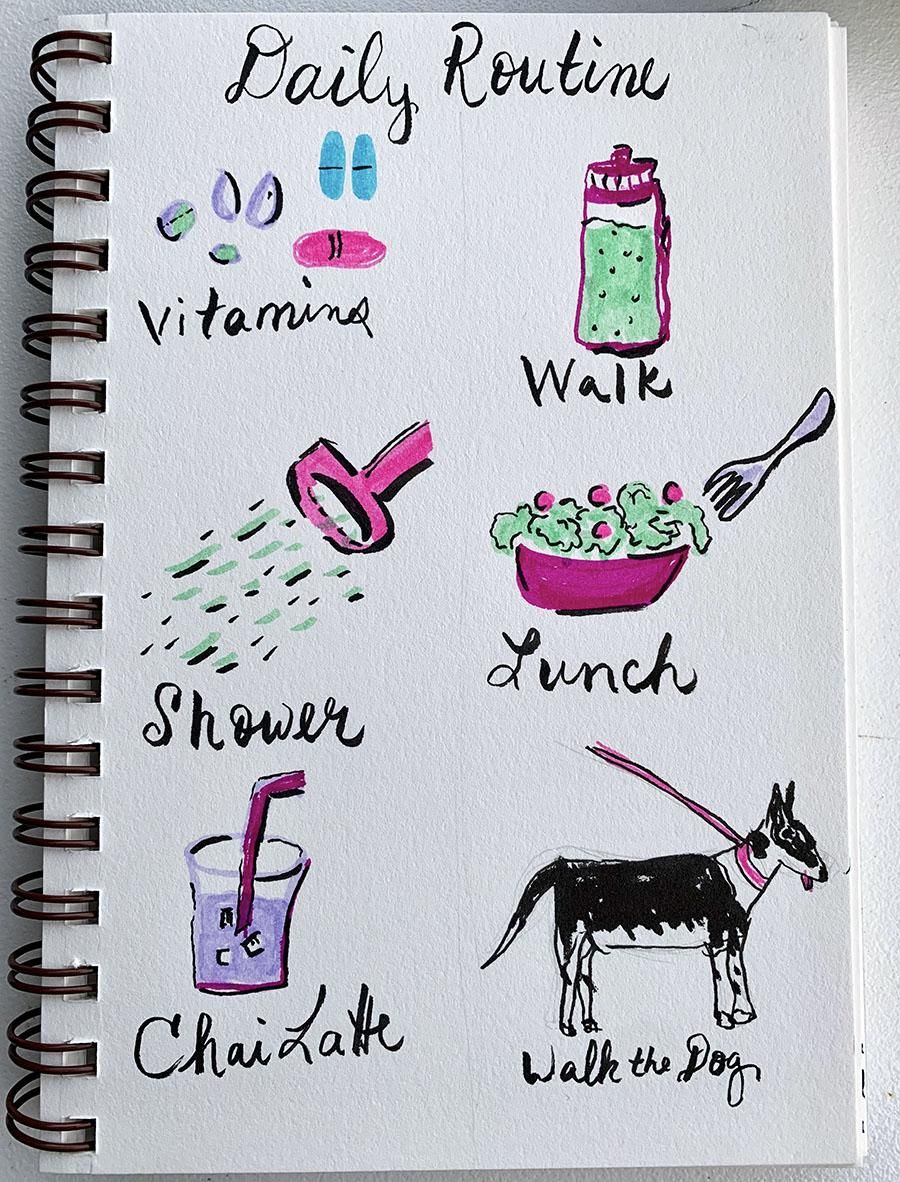 Daily Routine
Vitamins
Walk
Shower
Lunch
Chai Latte
Walk the Dog